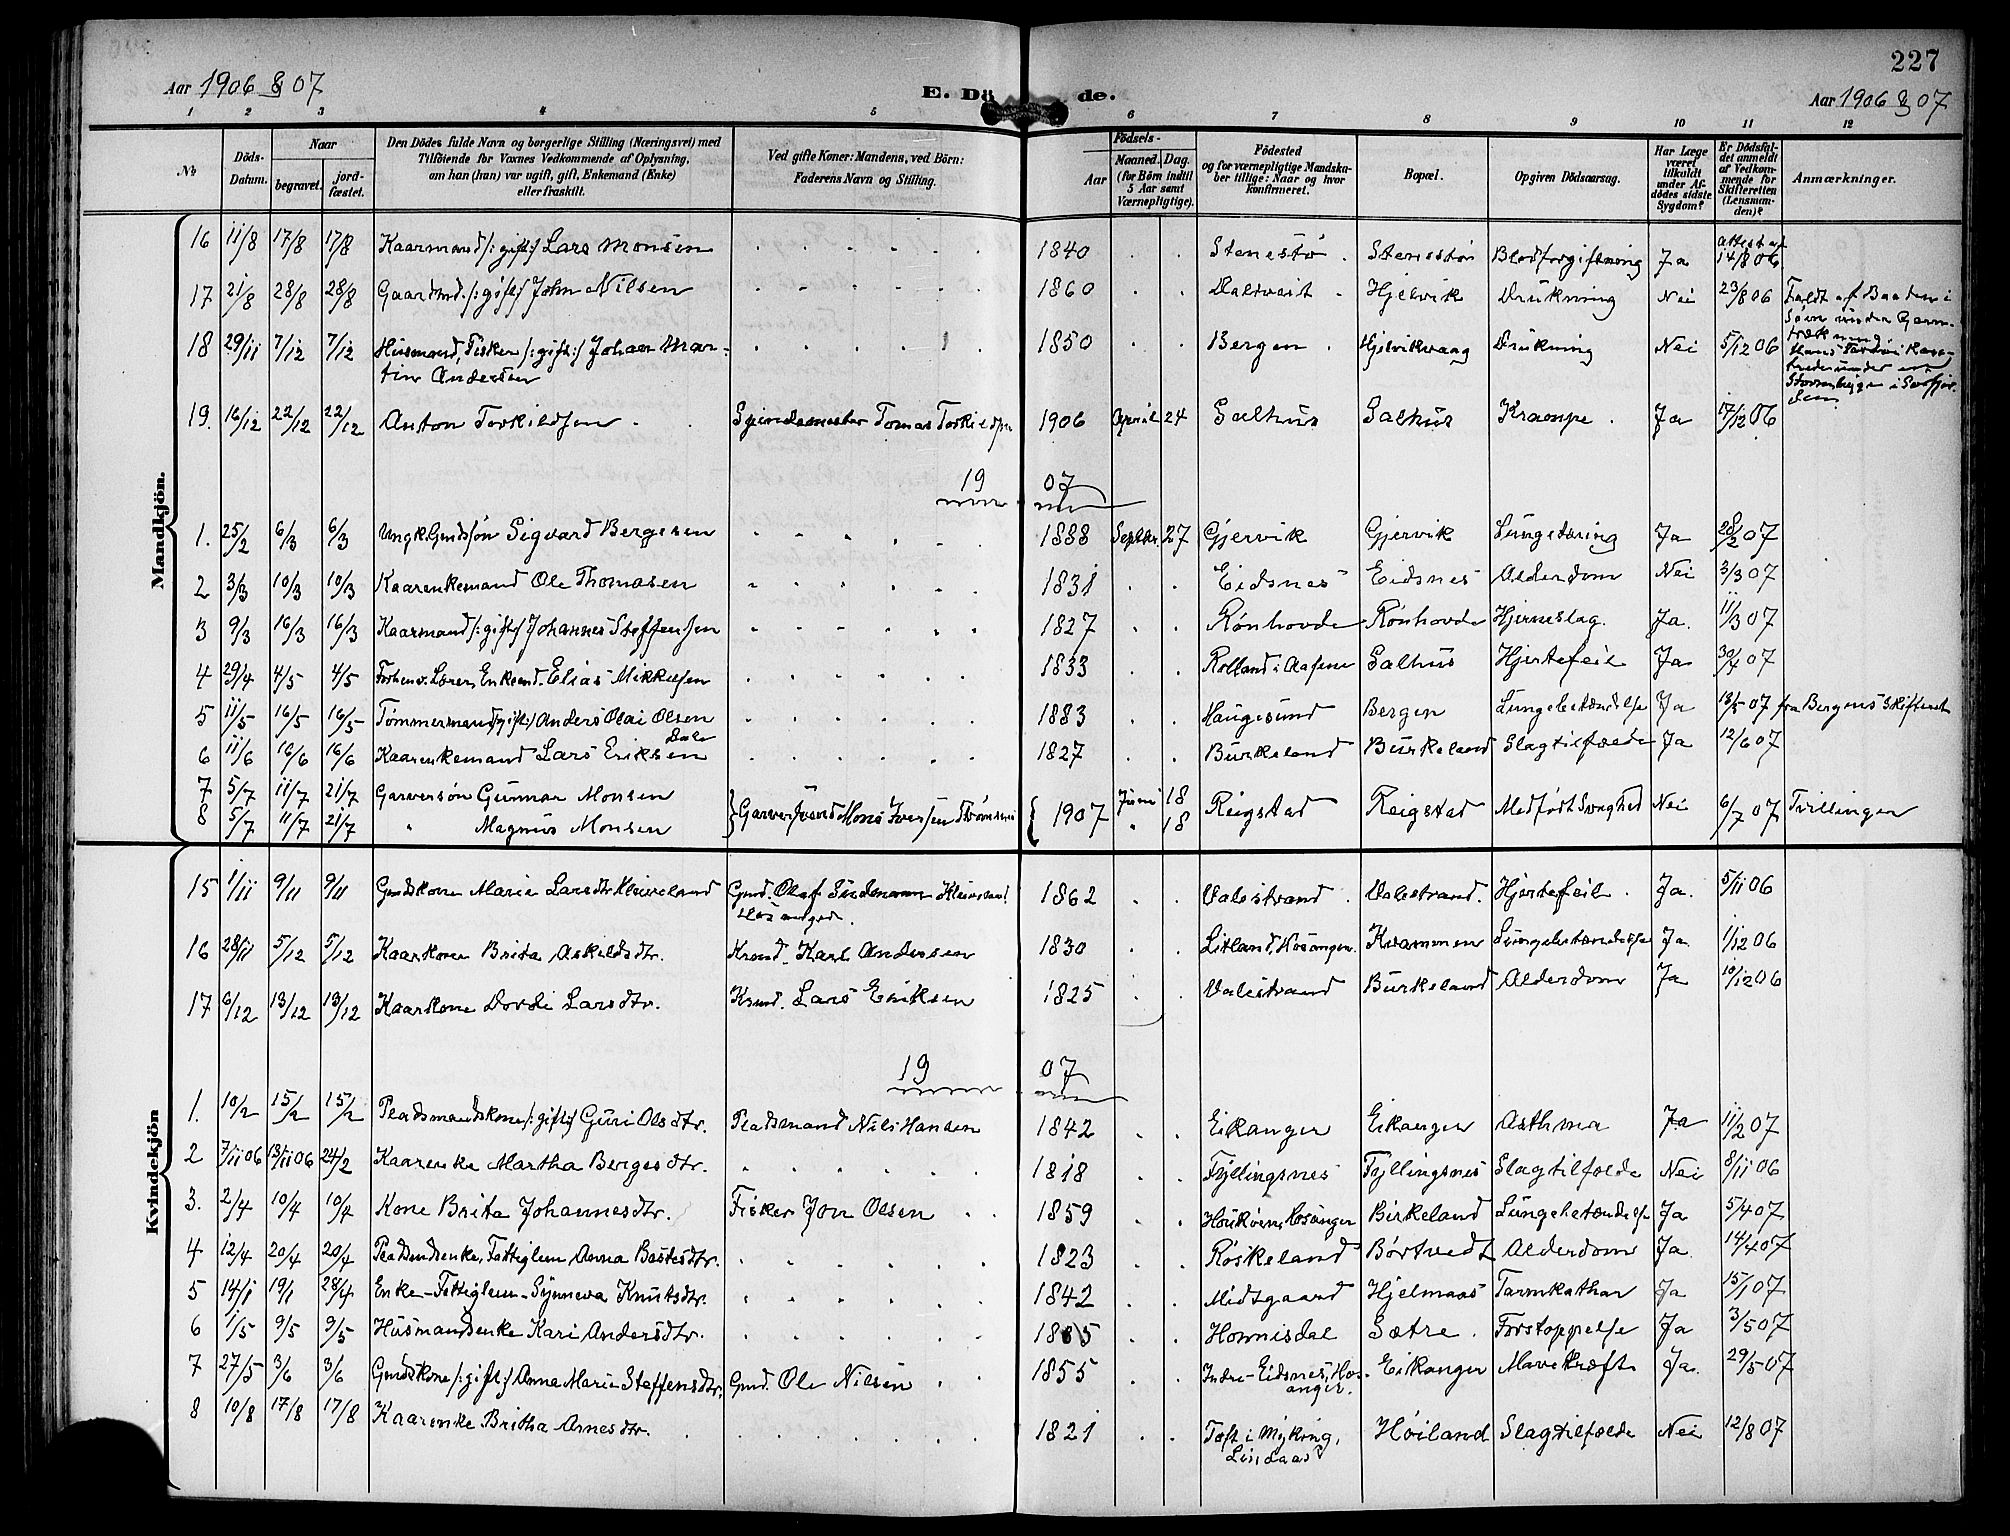 227
Aar 1906 & 07
E. Dö de.
Aar 1906 & 07
1 2 3 4 5 6 7 8 9 10 11 12
№
Döds-Datum.
Naar
begravet.
jord-fæstet.
Den Dödes fulde Navn og borgerlige Stilling (Næringsvei) med
Tilföiende for Voxnes Vedkommende af Oplysning,
om han (hun) var ugift, gift, Enkemand (Enke)
eller fraskilt.
Ved gifte Koner: Mandens, ved Börn:
Faderens Navn og Stilling.
Födsels-
Aar
Maaned. Dag.
(for Börn indtil
5 Aar samt
Værnepligtige).
Födested
og for værnepligtige Mandska-
ber tillige: Naar og hvor
konfirmeret.
Bopæl.
Opgiven Dödsaarsag.
Har Læge
været
tilkaldt
under Af-
dödes sidste
Sygdom?
Er Dödsfal-
det anmeldt
af Vedkom-
mende for
Skifteretten
(Lensman-
den)?
Anmærkninger.
Mandkjön.
16 11/8 17/8 17/8 Kaarmand /: gift :/ Lars Monsen 1840 Stenestø Stenestø Blodforgiftning Ja Attest af 14/8 06
17 21/8 28/8 28/8 Gaardmd. /: gift :/ John Nilsen 1860 Daltveit Hjelvik Drukning Nei 23/8 06 Faldt af Baaden i
Søen under Garn-
trækning.
18 29/11 7/12 7/12 Husmand, Fisker /: gift :/ Johan Mar- 1850 Bergen Hjelvikvaag Drukning Nei 5/12 06
tin Andersen
19. 16/12 22/12 22/12 Anton Torkildsen Spindemester Tomas Torkildsen 1906 April 24 Salhus Salhus Krampe Ja 17/12 06
1907
1. 25/2 6/3 6/3 Ungk. Gmdssøn Sigvard Bergesen 1888 Septbr. 27 Gjervik Gjervik Lungetæring Ja 28/2 07
2 3/3 10/3 10/3 Kaarenkemand Ole Thomasen 1831 Eidsnes Eidsnes Alderdom Nei 3/3 07
3 9/3 16/3 16/3 Kaarmand /: gift :/ Johannes Steffensen 1827 Rønhovde Rønhovde Hjerneslag. Ja. 11/3 07
4 29/4 4/5 4/5 Forhenv. Lærer, Enkemd. Elias Mikkelsen 1833 Rolland i Aasene Salhus Hjertefeil Ja 30/4 07
5 11/5 16/5 16/5 Tømmermand /: gift :/ Anders Olai Olsen 1883 Haugesund Bergen Lungebetændelse Ja 13/5 07 fra Bergens Skifteret
Dale
6 11/6 16/6 16/6 Kaarenkemand Lars Eriksen 1827 Burkeland Burkeland Slagtilfælde Ja 12/6 07
7 5/7 11/7 21/7 Garversøn Gunnar Monsen } Garversvend Mons Iversen { 1907 Juni 18 Reigstad Reigstad Medfødt Svaghed Nei 6/7 07 Tvillinger
8 5/7 11/7 21/7 " Magnus Monsen " 18
Kvindekjön
15 1/11 9/11 9/11 Gmdskone Marie Larsdtr. Kleiveland Gmd. Olaf Kleiveland 1862 Valestrand Valestrand. Hjertefeil Ja. 5/11 06
Hosanger.
16 28/11 5/12 5/12 Kaarkone Brita Askeldsdtr. Krmd. Karl Andersen 1830 Litland, Hosanger. Kvammen Lungebetændelse Ja 1/12 06
17 6/12 13/12 13/12 Kaarkone Dordi Larsdtr. Krmd. Lars Eriksen 1825 Valestrand Burkeland Alderdom Ja 10/12 06
1907
1. 10/2 15/2 15/2 Pladsmandskone /: gift :/ Guri Olsdtr. Pladsmand Nils Hansen 1842 Eikanger Eikanger Asthma Ja 11/2 07
2 7/11 06 13/11 06 24/2 Kaarenke Martha Bergesdtr. 1818 Fyllingsnes Fyllingsnes Slagtilfælde Nei 8/11 06
3. 2/4 10/4 10/4 Kone Brita Johannesdtr. Fisker Jon Olsen 1859 Hosanger Birkeland Lungebetændelse Ja 5/4 07
4 12/4 20/4 20/4 Pladsmdsenke, Fattiglem Anna Bastesdtr. 1823 Røskeland Børtvedt Alderdom Ja. 14/4 07
5 14/1 19/1 28/4 Enke - Fattiglem - Synneva Knutsdtr. 1842 Midtgaard Hjelmaas Tarmkathar Ja 15/1 07
6 1/5 9/5 9/5 Husmandsenke Kari Andersdtr. Hornisdal Sætre. Forstoppelse Ja 3/5 07
7 27/5 3/6 3/6 Gmdskone /: gift :/ Anne Marie Steffensdtr. Gmd. Ole Nilsen 1855 Indre-Eidsnes, Hos- Eikanger Mavekræft Ja. 29/5 07
anger.
8 10/8 17/8 17/8 Kaarenke Britha Arnesdtr. 1821 Toft i Myking, Høiland Slagtilfælde Nei 12/8 07
Lindaas